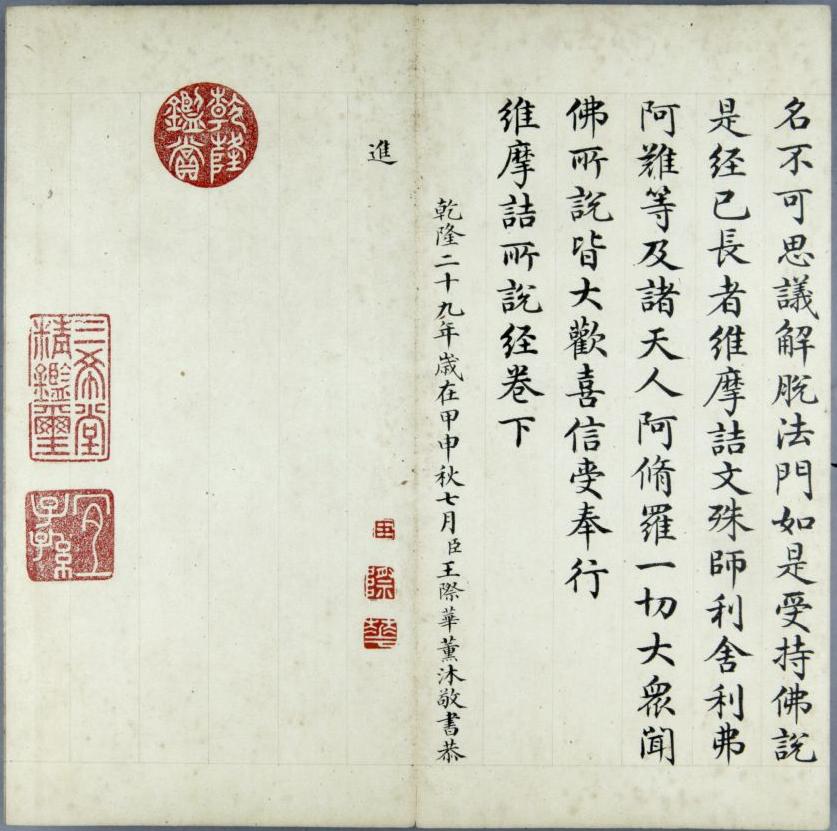 名不可思議解脫法門如是受持佛說
是経已長者維摩詰文殊師利舍利弗
阿難等及諸天人阿脩羅一切大眾聞
佛所說皆大歡喜信受奉行
維摩詰所說経卷下
乾隆二十九年歲在甲申秋七月臣王際華薰沐敬書恭
進
臣
際
華
乾隆
鑑賞
三希堂
精鑑璽
宜
子孫